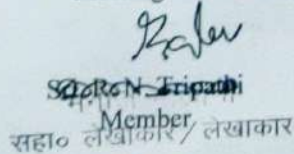 R. N. Tripathi
Member
सहा० लेखाकार / लेखाकार